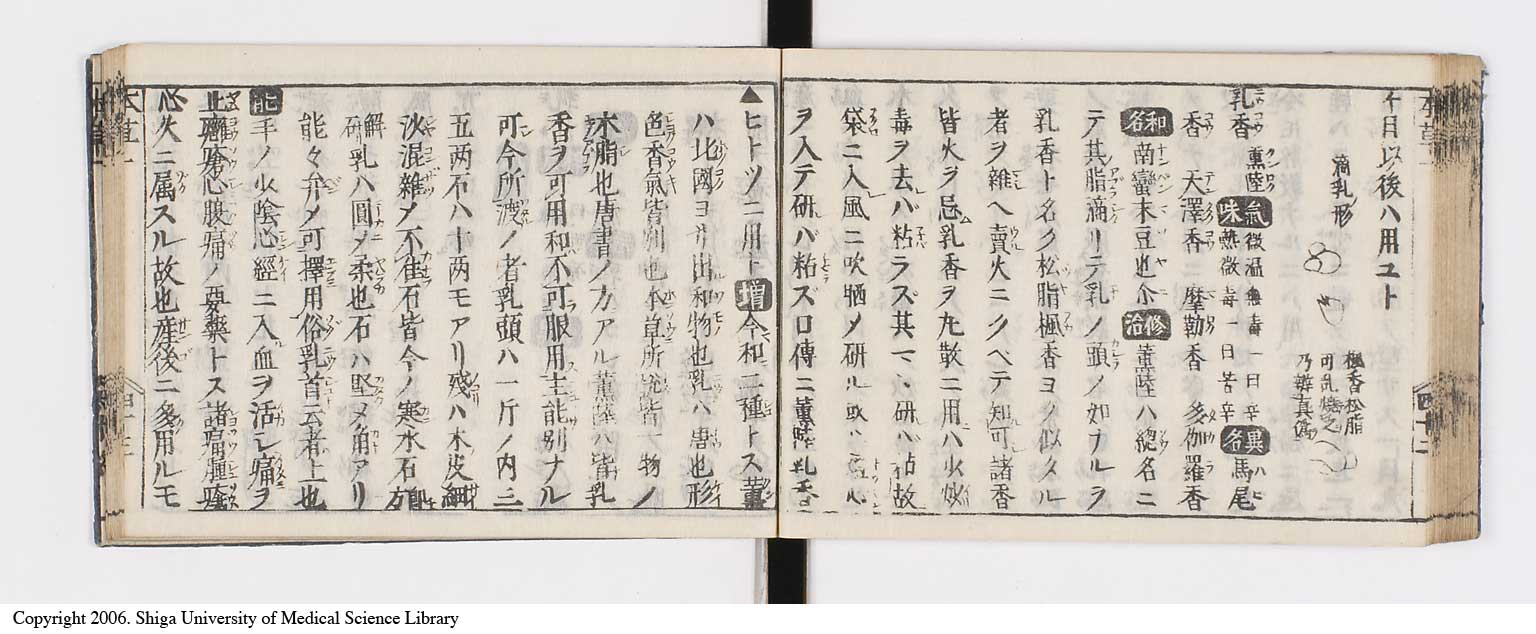 不日以後ハ用ユト
滴乳形
楓香松脂
可乱焼之
乃辨真偽
乳香 薫陸 氣味 微温無毒一曰辛
熱微毒一曰苦辛 異名 馬尾
香 天澤香 摩勒香 多伽羅香
和名 南蠻末豆也尓 修治 薫陸ハ総名ニ
テ其脂滴リテ乳ノ頭ノ如ナルヲ
乳香ト名ク松脂楓香ヨク似タル
者ヲ雜ヘ賣火ニクベテ知可諸香
皆火ヲ忌乳香ヲ丸散ニ用ハ火炒
毒ヲ去バ粘ラズ其マヽ研バ粘故
袋ニ入風ニ吹晒メ研ル或ハ燈心
ヲ入テ研バ粘ズ口傳ニ薫陸乳香
▲ヒトツニ用ト 増 今和二種トス薫
ハ北國ヨリ出和物也乳ハ唐也形
色香氣皆別也本草所説皆一物ノ
木脂也唐書ノ方アル薫陸ハ皆乳
香ヲ可用和不可服用主能別ナル
可今所渡ノ者乳頭ハ一斤ノ内三
五两不ハ十两モアリ残ハ木皮細
沙混雜メ不佳石皆今ノ寒水石
解乳ハ圓メ柔也石ハ堅メ角アリ
能々弁メ可擇用俗乳首云者上也
能 手ノ少陰心經ニ入血ヲ活シ痛ヲ
止癰瘡心腹痛ノ要藥トス諸瘡腫
心火ニ属スル故也産後ニ多用ルモ
本草一
四十二
Copyright 2006. Shiga University of Medical Science Library